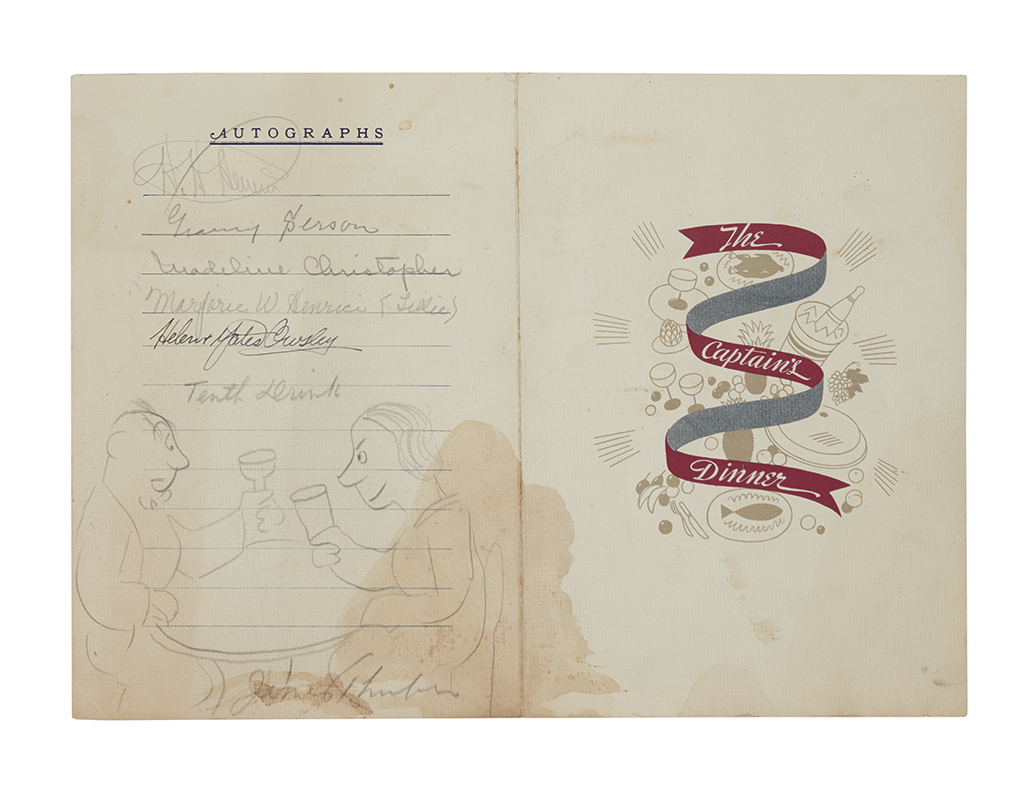 AUTOGRAPHS
Madeline Christopher
Marjorie W. Henrici (Lillie)
Helen Yates Crosley
Tenth Drink
James Thurber
The
Captain's
Dinner